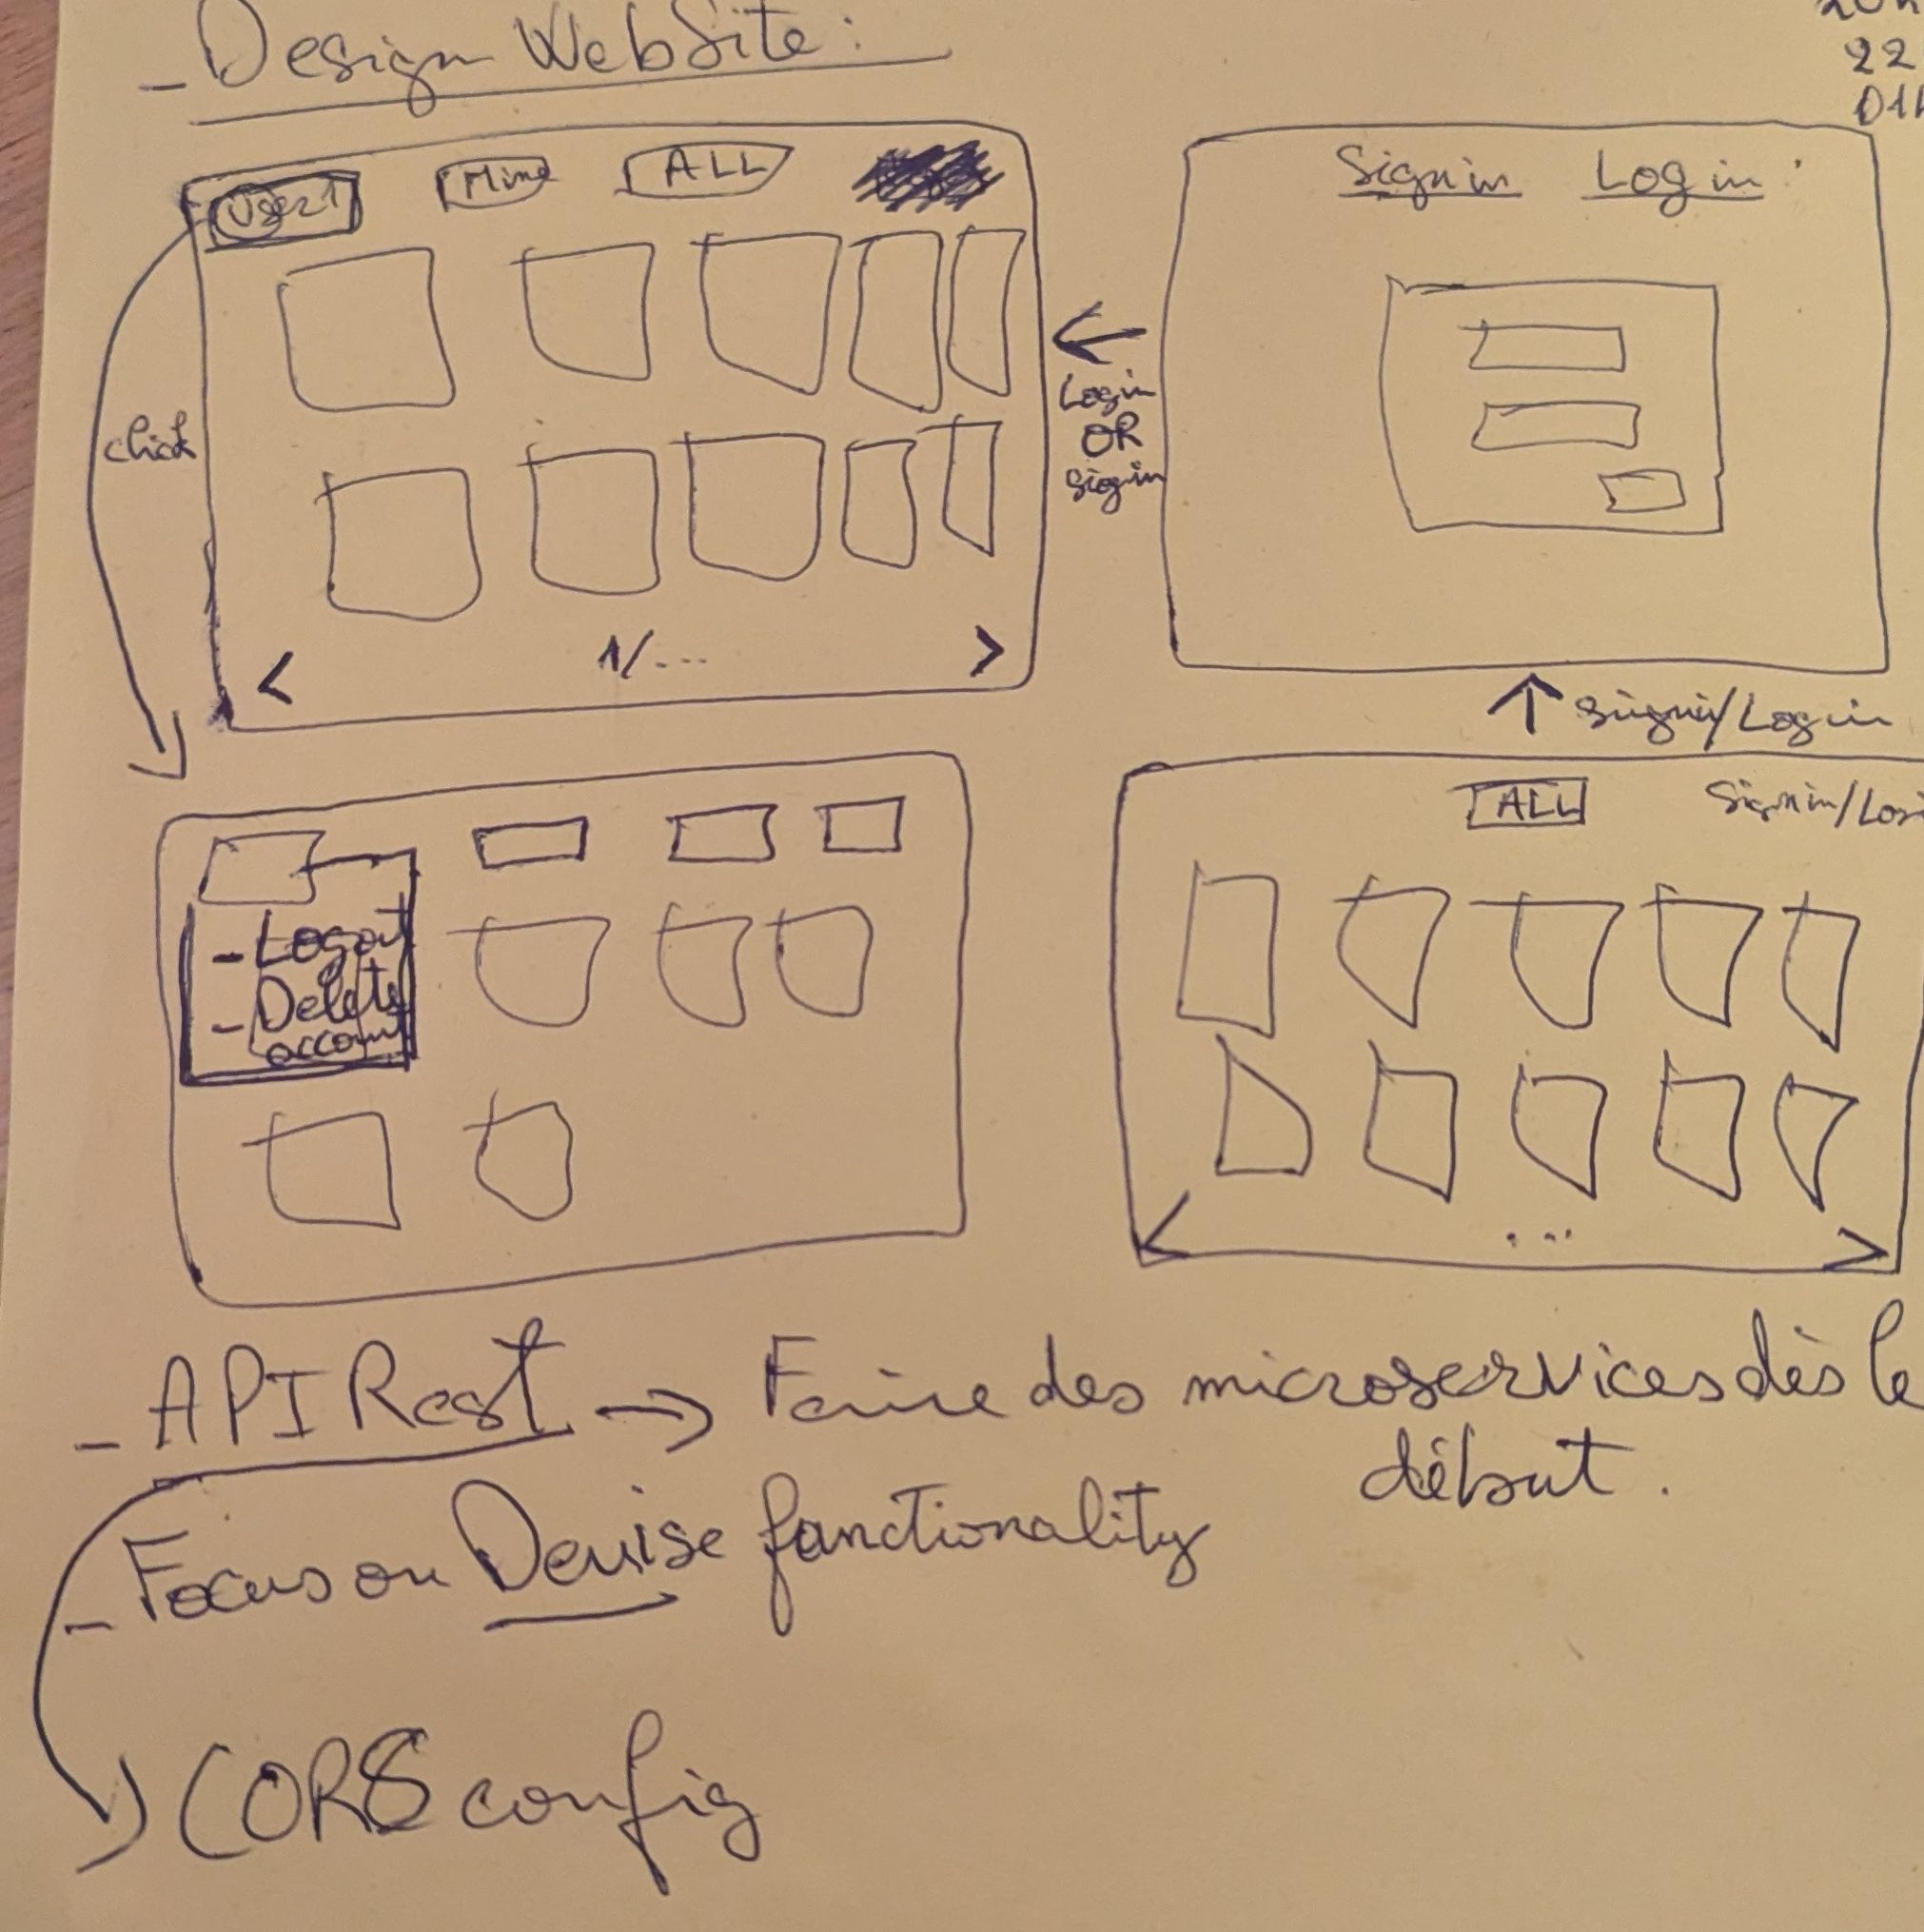 - Design WebSite:
22
User1 Mine ALL
Sign in Log in:
click
Login
OR
Sign in
< 1/... >
Sign in/Log in
ALL Sign in/Logi
- Logout
- Delete
account
< ... >
- API Rest → Faire des microservices dès le
début.
- Focus on Devise functionality
CORS config